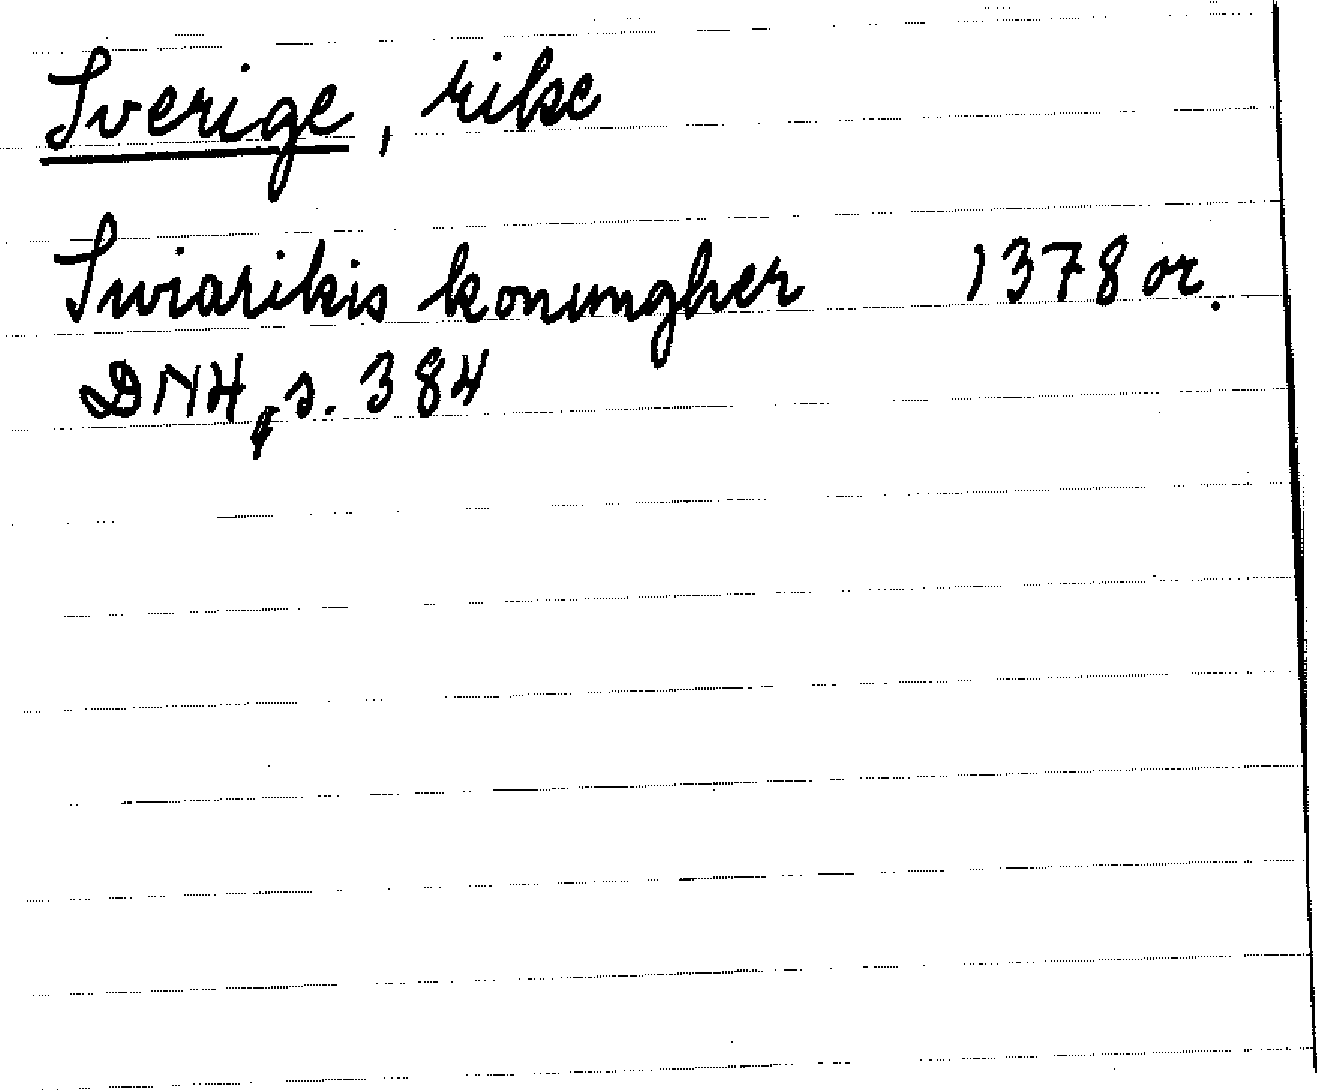 Sverige, rike
Swiarikis konungher 1378 or.
DNH, s. 384